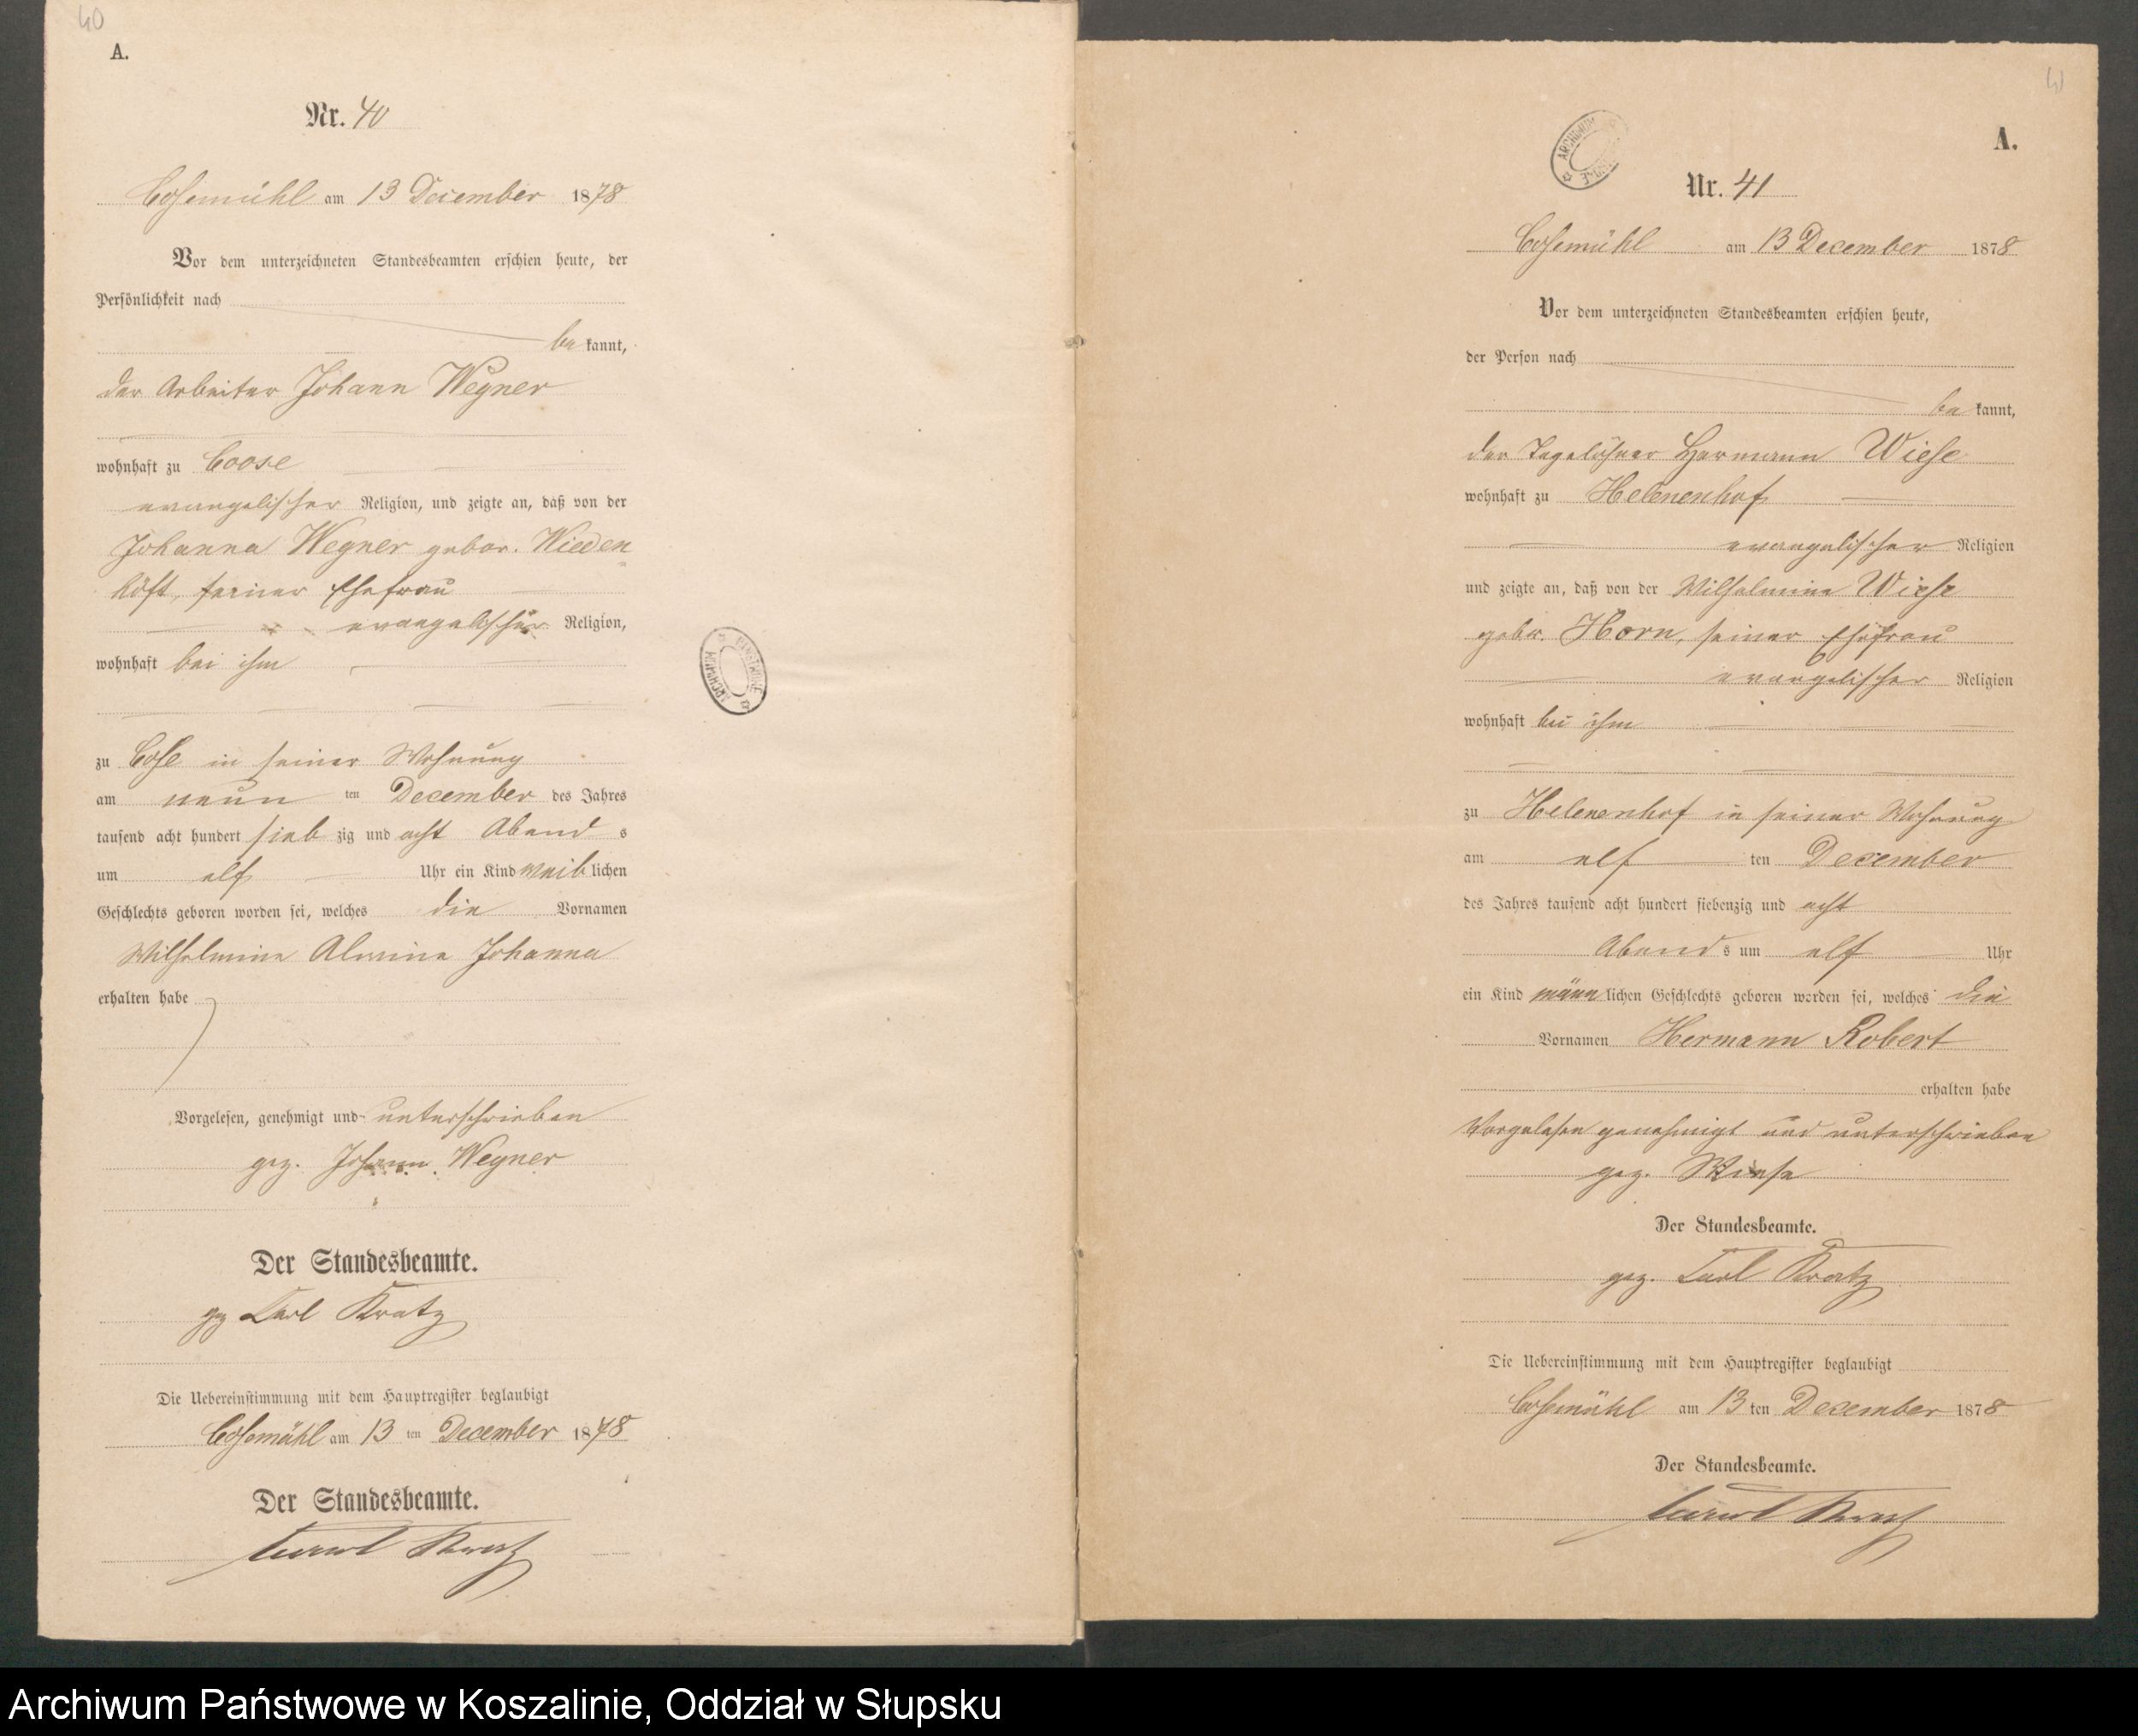 40
A.
Nr. 40
Cosemühl am 13 December 1878
Vor dem unterzeichneten Standesbeamten erschien heute, der
Persönlichkeit nach
be kannt,
der Arbeiter Johann Wegner
wohnhaft zu Coose
evangelischer Religion, und zeigte an, daß von der
Johanna Wegner gebor. Wieden
höft, seiner Ehefrau
evangelischer Religion,
wohnhaft bei ihm
zu Cose in seiner Wohnung
am neun ten December des Jahres
tausend acht hundert sieb zig und acht Abend s
um elf Uhr ein Kind weib lichen
Geschlechts geboren worden sei, welches die Vornamen
Wilhelmine Alwine Johanna
erhalten habe
Vorgelesen, genehmigt und unterschrieben
gez. Johann Wegner
Der Standesbeamte.
gez Carl Kratz
Die Uebereinstimmung mit dem Hauptregister beglaubigt
Cosemühl am 13 ten December 1878
Der Standesbeamte.
Carl Kratz
ARCHIWUM PAŃSTWOWE
41
ARCHIWUM
A.
Nr. 41
Cosemühl am 13 December 1878
Vor dem unterzeichneten Standesbeamten erschien heute,
der Person nach
be kannt,
der Tagelöhner Hermann Wiese
wohnhaft zu Helenenhof
evangelischer Religion
und zeigte an, daß von der Wilhelmine Wiese
gebor. Horn, seiner Ehefrau
evangelischer Religion
wohnhaft bei ihm
zu Helenenhof in seiner Wohnung
am elf ten December
des Jahres tausend acht hundert siebenzig und acht
Abend s um elf Uhr
ein Kind männ lichen Geschlechts geboren worden sei, welches die
Vornamen Hermann Robert
erhalten habe
Vorgelesen genehmigt und unterschrieben
gez. Wiese
Der Standesbeamte.
gez. Carl Kratz
Die Uebereinstimmung mit dem Hauptregister beglaubigt
Cosemühl am 13 ten December 1878
Der Standesbeamte.
Carl Kratz
Archiwum Państwowe w Koszalinie, Oddział w Słupsku